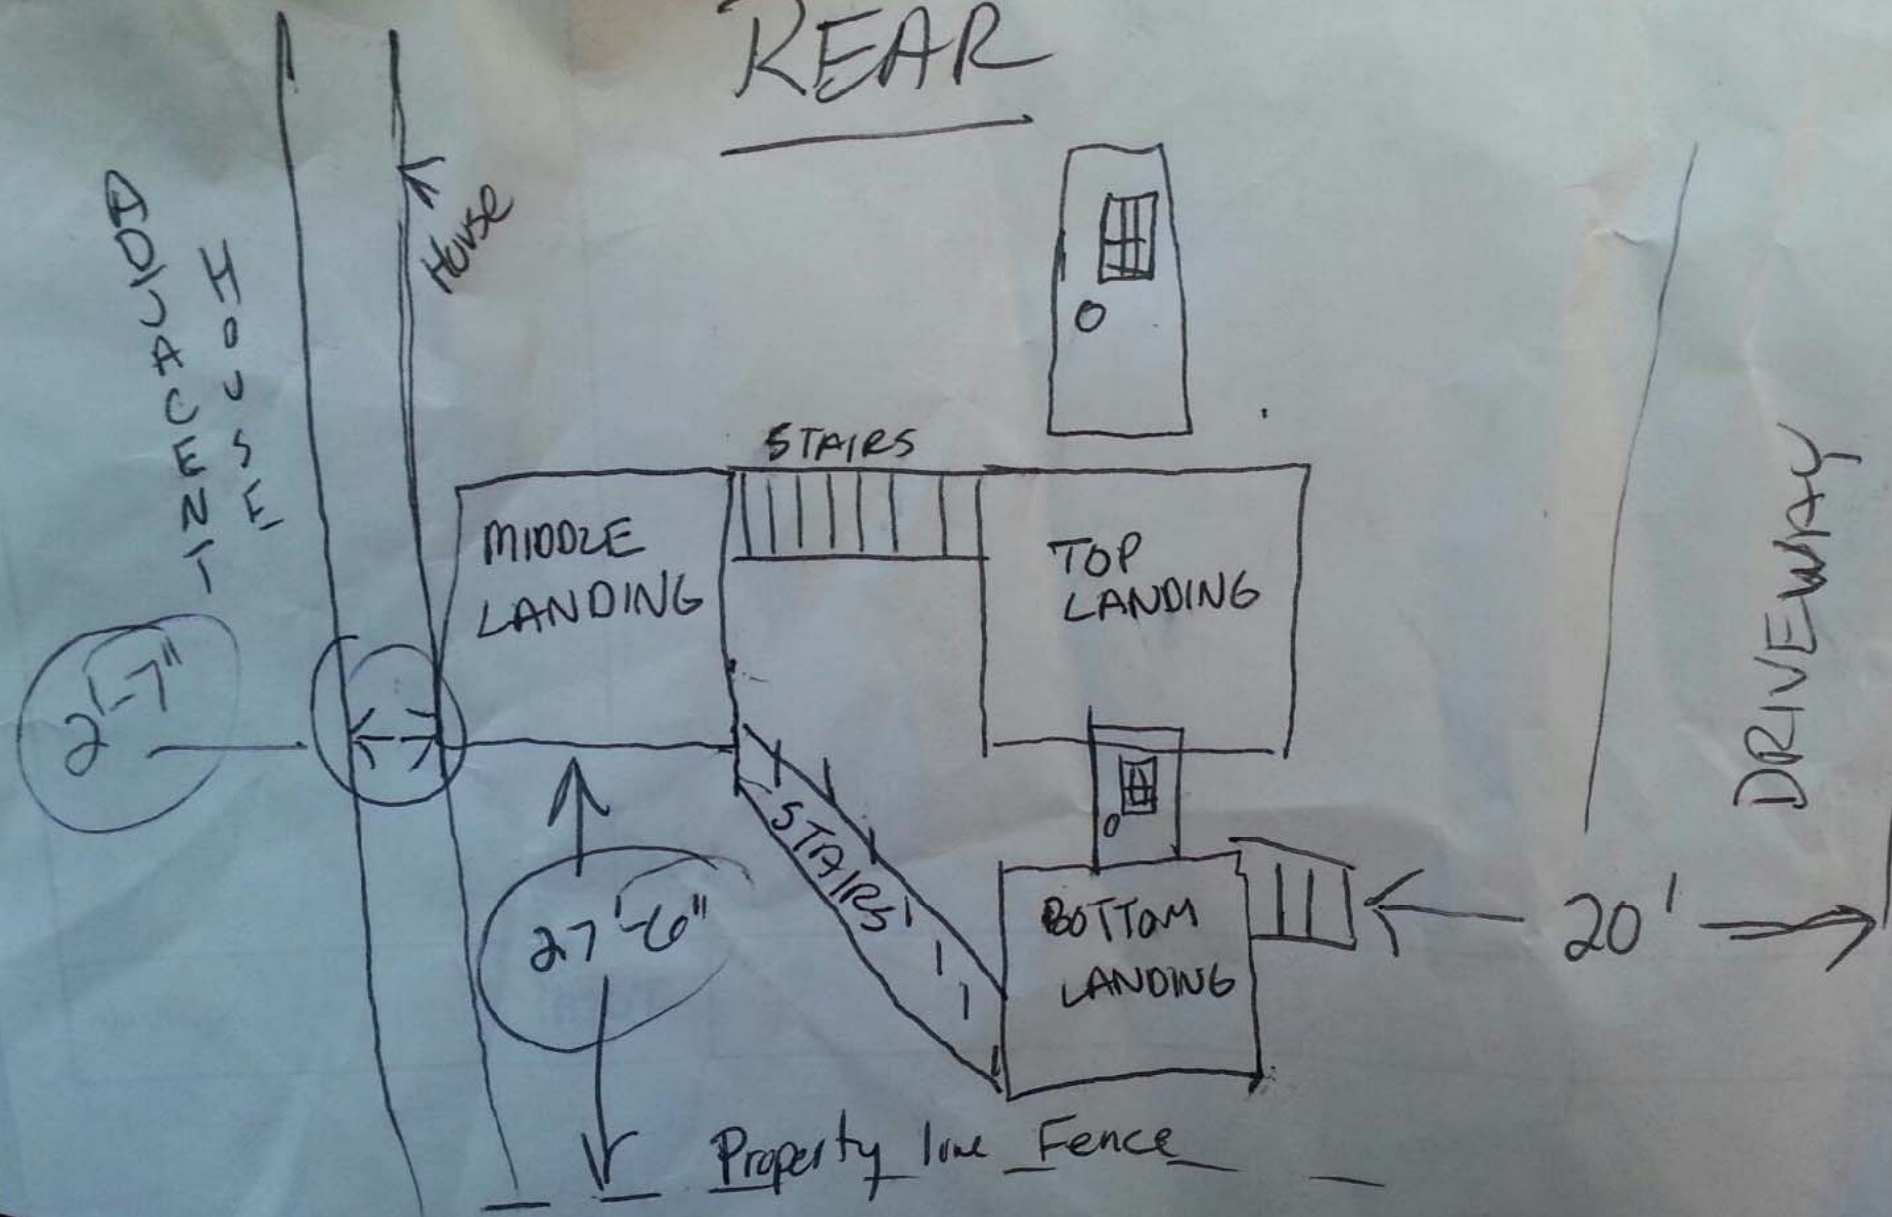 REAR
ADJACENT
HOUSE
House
STAIRS
MIDDLE
LANDING
TOP
LANDING
2'-7"
DRIVEWAY
STAIRS
27'-6"
BOTTOM
LANDING
20'
Property line Fence